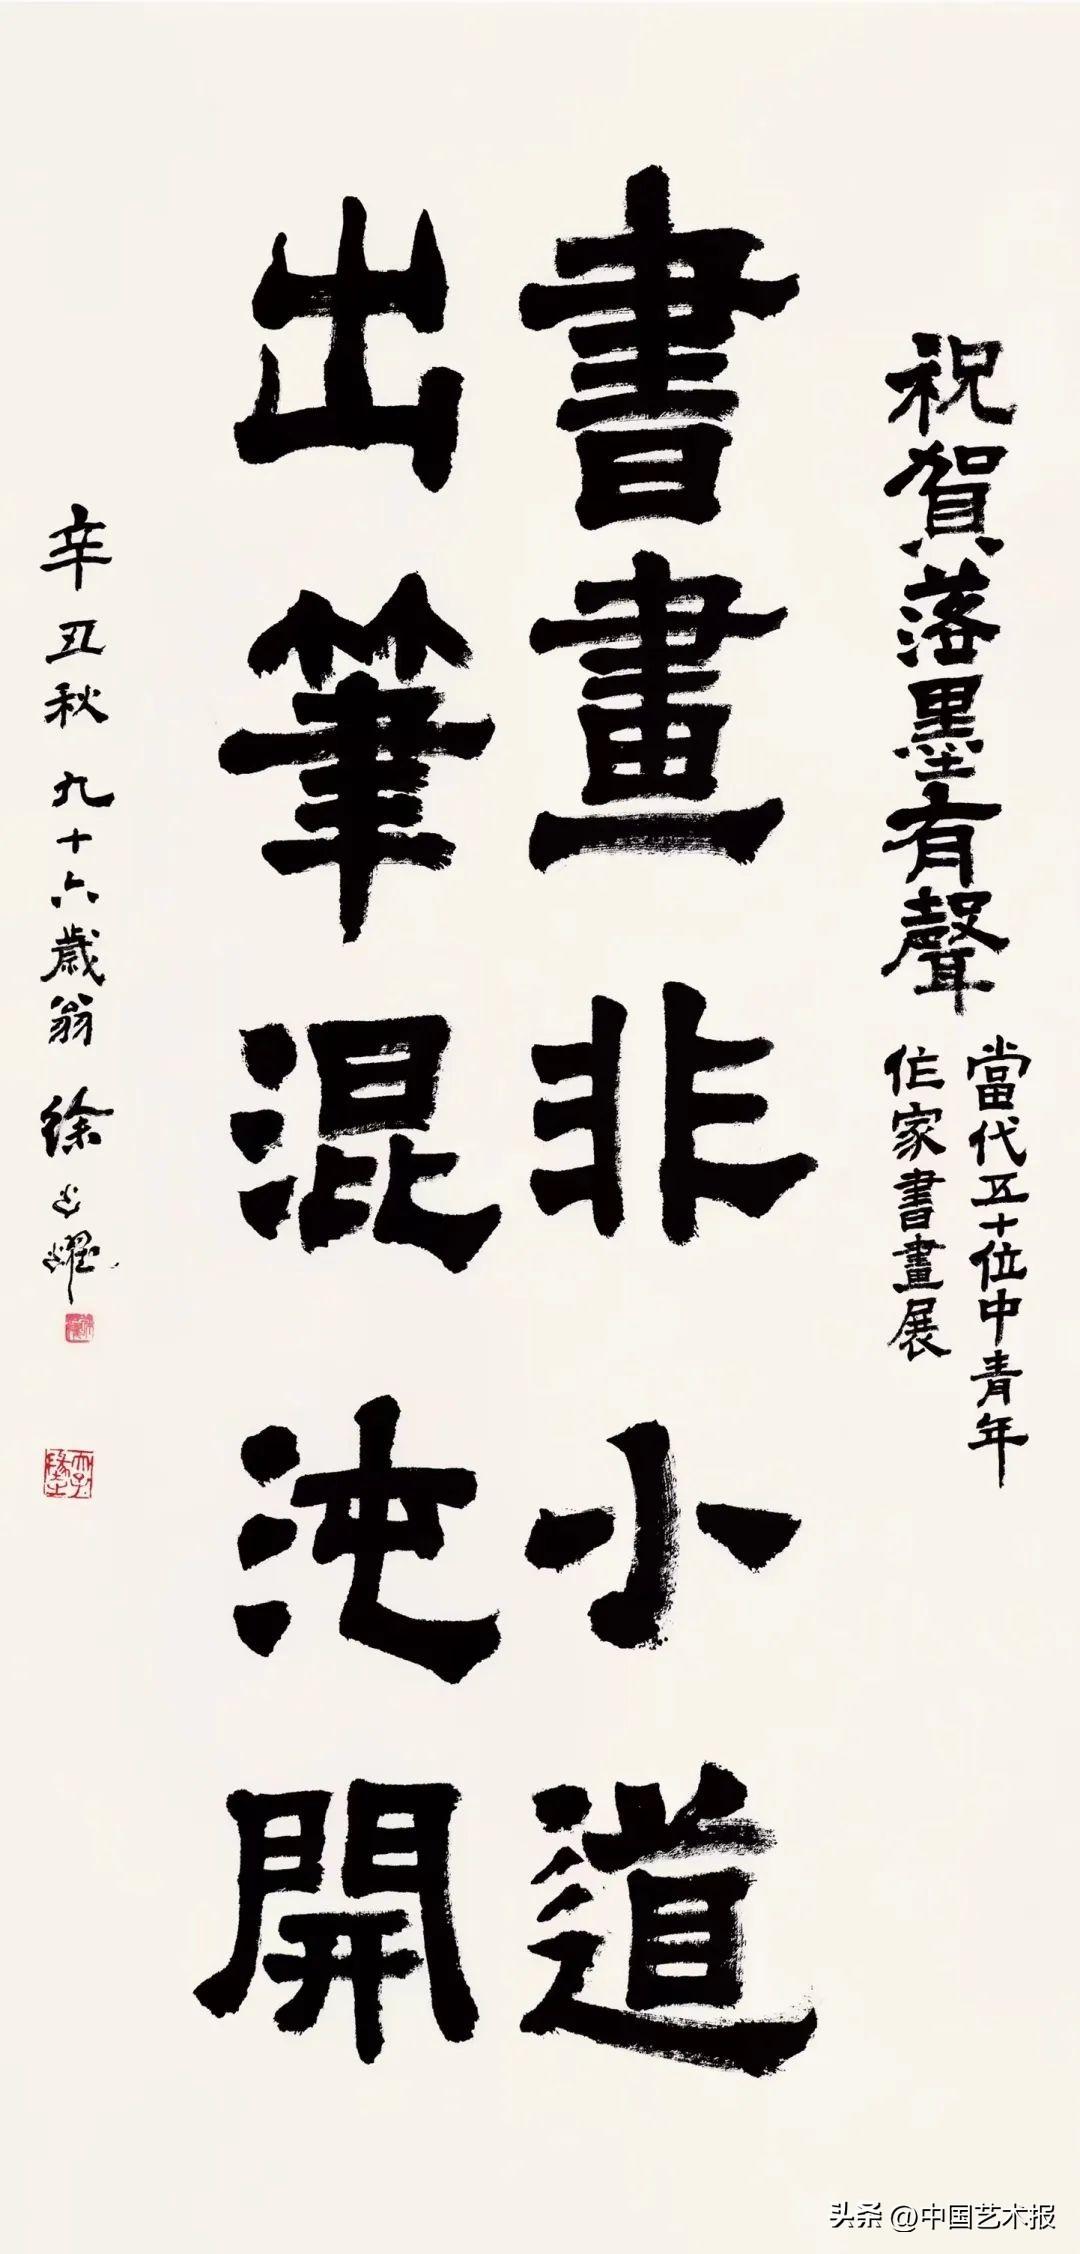 祝賀落墨有聲
當代五十位中青年
作家書畫展
書畫非小道
出筆混沌開
辛丑秋 九十六歲翁 徐
头条 @中国艺术报